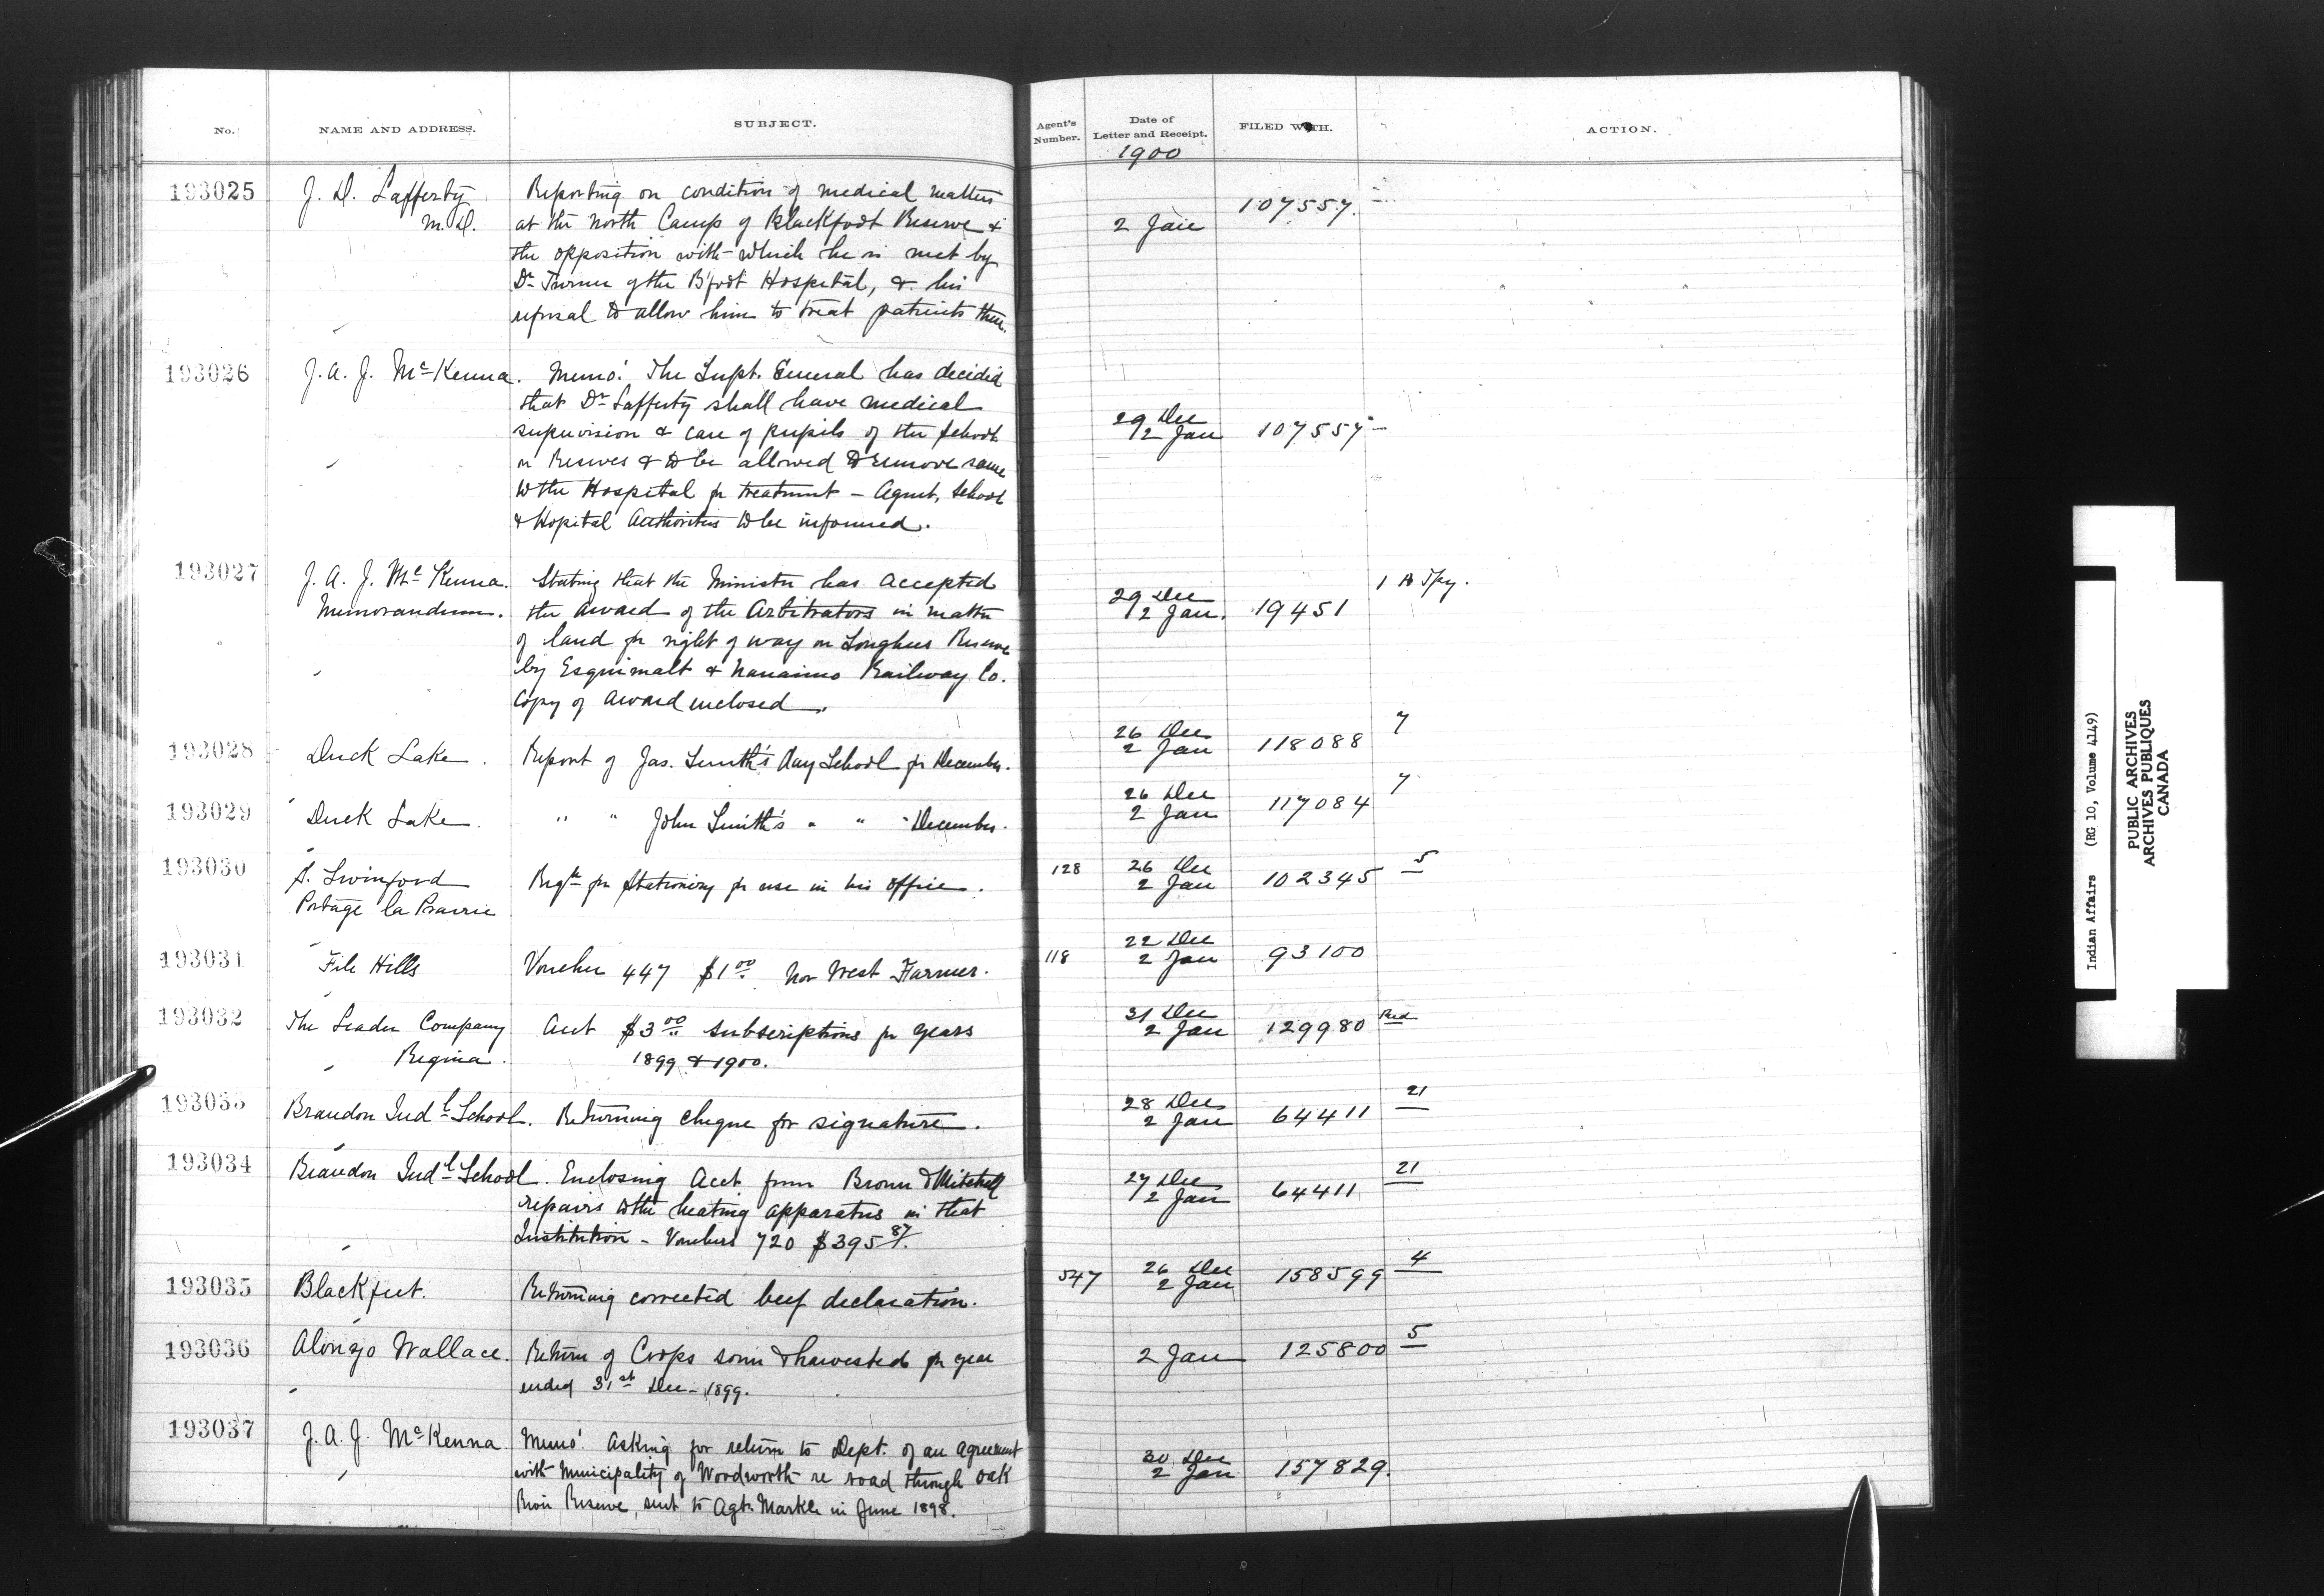 No. NAME AND ADDRESS. SUBJECT. Agent's Number. Date of Letter and Receipt. FILED WITH. ACTION.
1900
193025 J. D. Lafferty Reporting on condition of medical matters 107557
M.D. at the North Camp of Blackfoot Reserve & 2 Jan
the opposition with which he is met by
Dr Turner of the B'foot Hospital, & his
refusal to allow him to treat patients there.
193026 J. A. J. McKenna. Memo: The Supt. General has decided
that Dr Lafferty shall have medical 29 Dec
supervision & care of pupils of the schools 2 Jan 107557
on Reserves & to be allowed to remove same
to the Hospital for treatment – Agent, School
& Hopital Authorities to be informed.
193027 J. A. J. McKenna. Stating that the Minister has accepted 29 Dec 1
Memorandum. the award of the Arbitrators in matter 2 Jan. 19451
of land for right of way on Songhees Reserve
by Esquimalt & Nanaimo Railway Co.
Copy of award enclosed.
26 Dec 7
193028 Duck Lake. Report of Jas. Smith's Day School for December. 2 Jan 118088
26 Dec 7
193029 Duck Lake. " " John Smith's " " December. 2 Jan 117084
26 Dec 5
193030 S. Swinford Reqt for Stationery for use in his office. 128 2 Jan 102345
Portage la Prairie
22 Dec
193031 File Hills Voucher 447 $1 00 Nor West Farmer. 118 2 Jan 93100
31 Dec
193032 The Leader Company Acct $3 00 subscriptions for years 2 Jan 129980
Regina. 1899 & 1900.
28 Dec 21
193033 Brandon Indl School. Returning cheque for signature. 2 Jan 64411
193034 Brandon Indl School. Enclosing Acct from Brown & Mitchell 27 Dec 21
repairs to the heating apparatus in that 2 Jan 64411
Institution – Vouchers 720 $395 87.
26 Dec 4
193035 Blackfeet. Returning corrected beef declaration. 547 2 Jan 158599
193036 Alonzo Wallace. Return of Crops sown & harvested for year 2 Jan 125800 5
ended 31st Dec – 1899.
193037 J. A. J. McKenna Memo: asking for return to Dept. of an agreement 30 Dec
with Municipality of Woodworth re road through Oak 2 Jan 157829.
River Reserve, sent to Agt. Markle in June 1898.
Indian Affairs (RG 10, Volume 4149)
PUBLIC ARCHIVES
ARCHIVES PUBLIQUES
CANADA